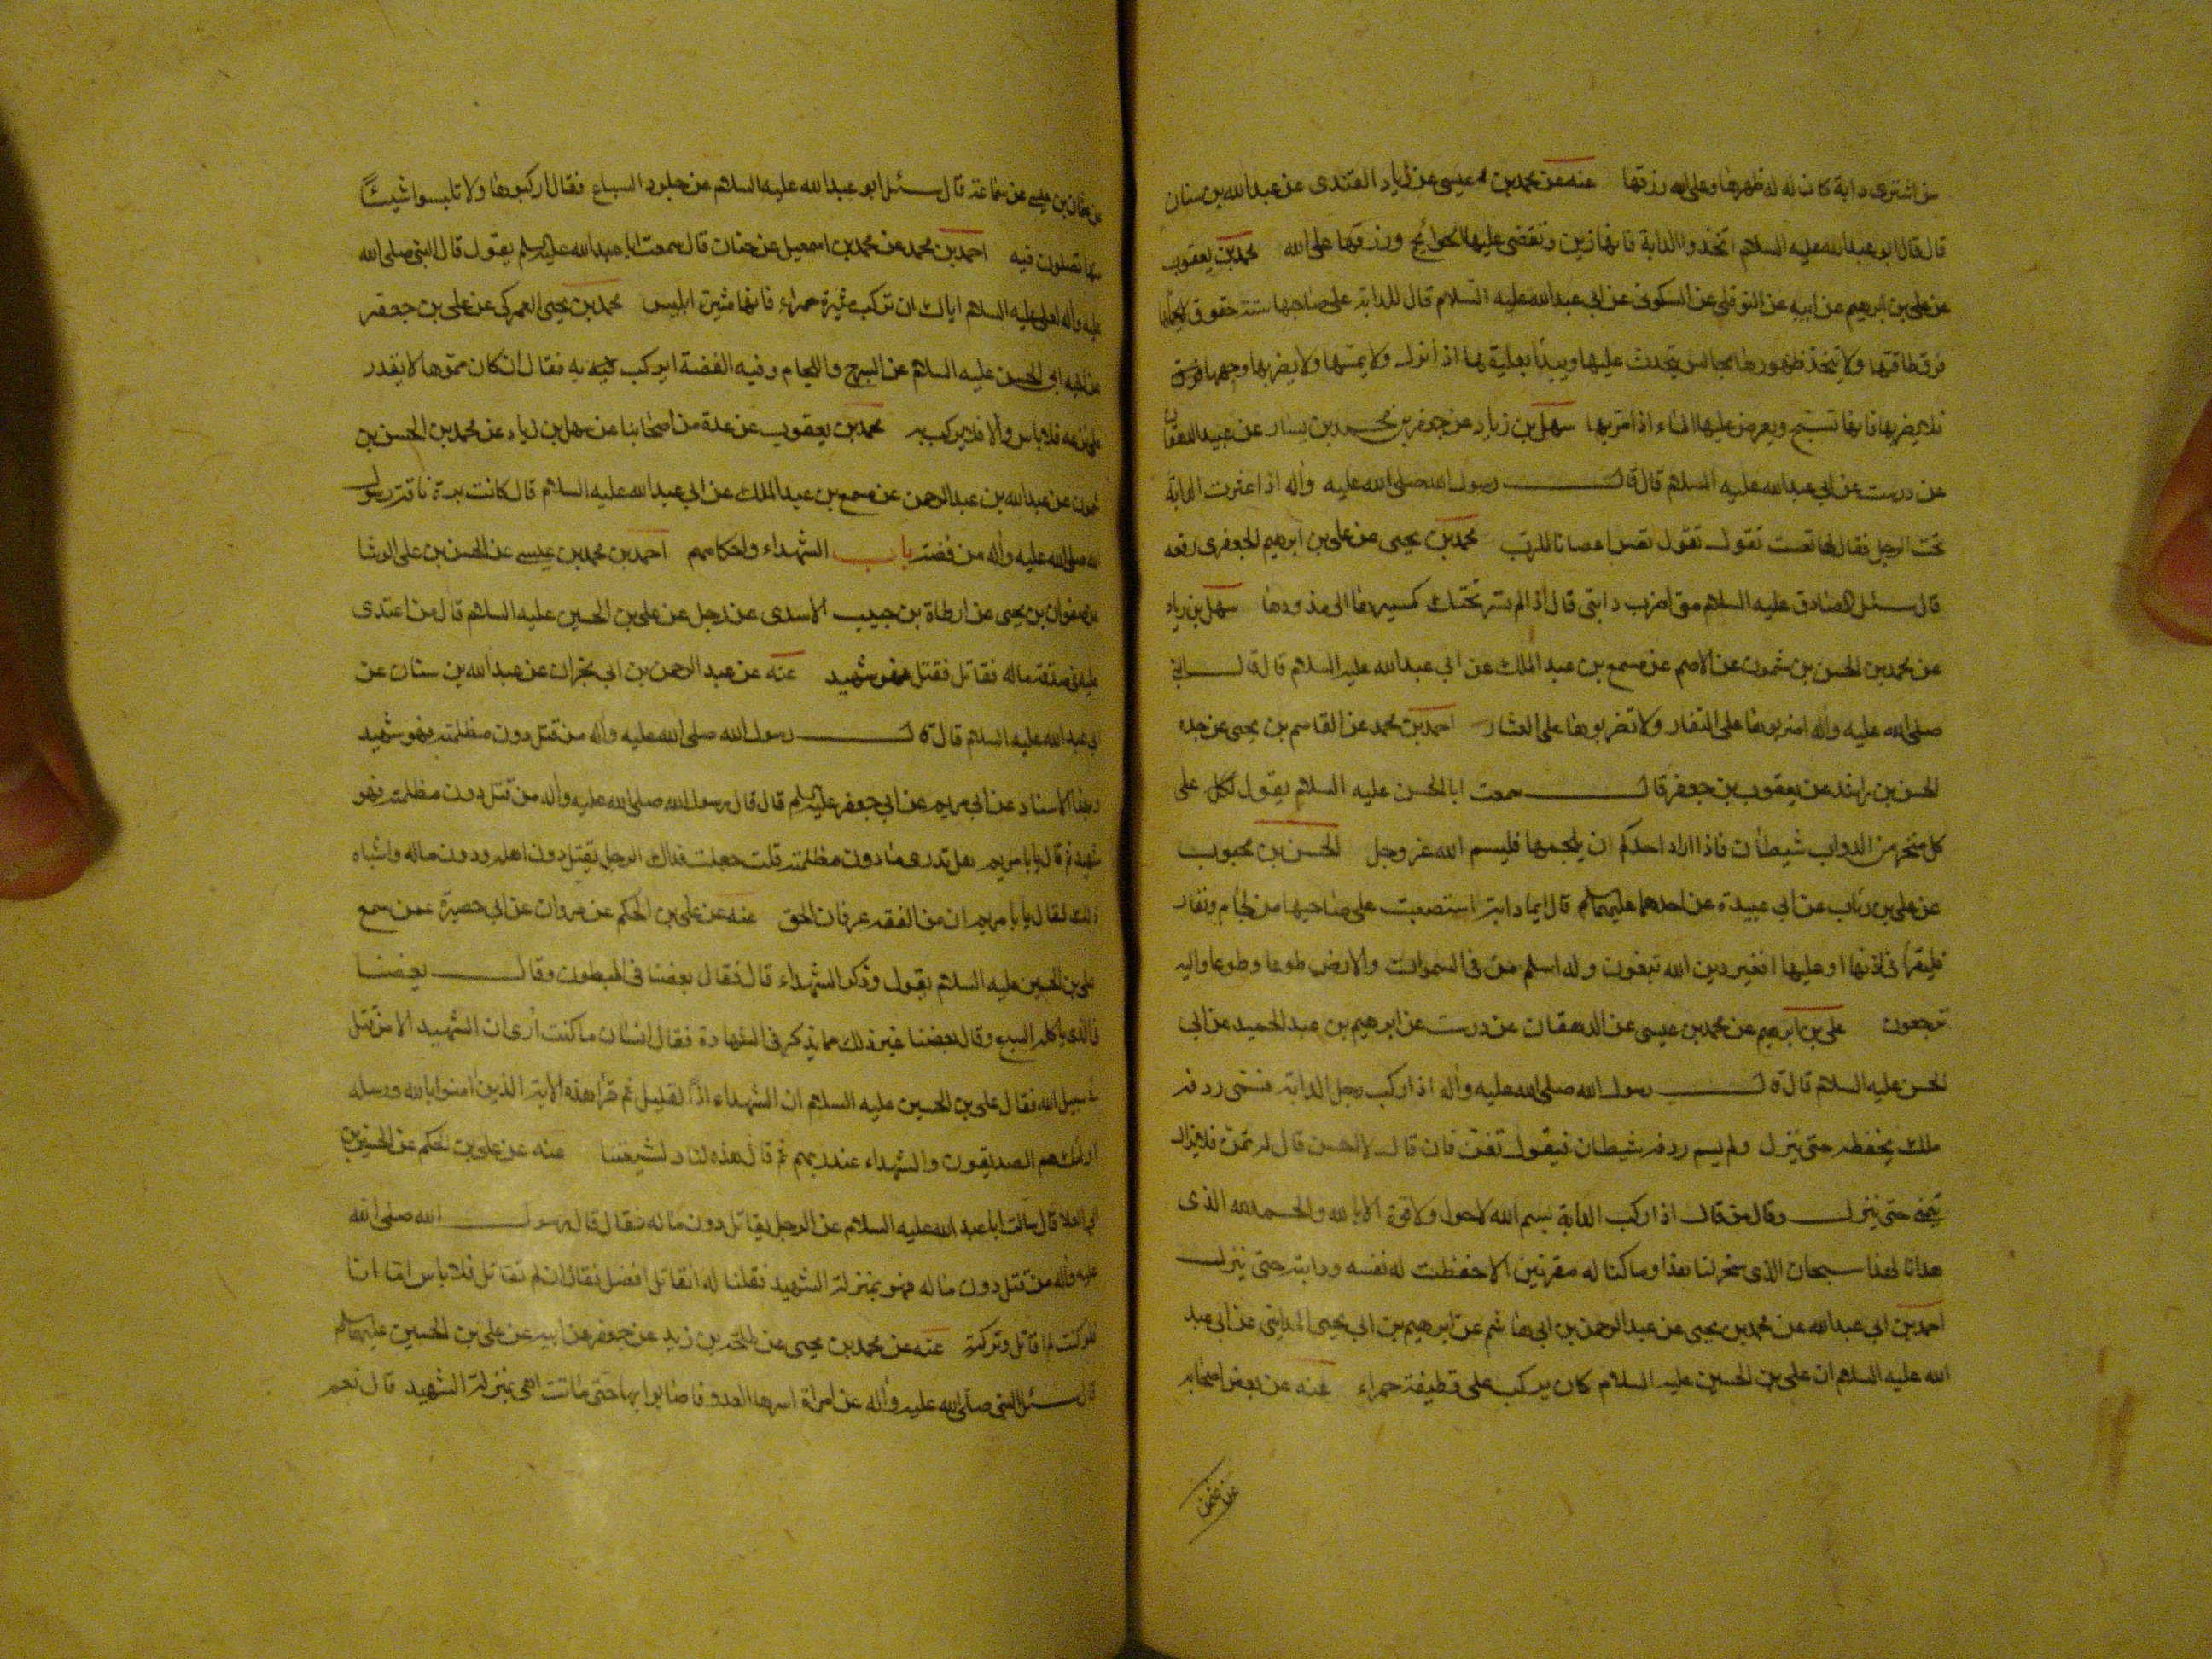 من اشترى دابة كان له ظهرها وعلى الله رزقها عنه عن محمد بن عيسى عن زياد القندى عن عبد الله بن سنان
قال قال ابو عبد الله عليه السلام اتخذوا الدابة فانها زين وتقضى عليها الحوائج ورزقها على الله محمد بن يعقوب
عن على بن ابرهيم عن ابيه عن النوفلى عن السكونى عن ابى عبد الله عليه السلام قال للدابة على صاحبها ستة حقوق لا يحملها
فوق طاقتها ولا يتخذ ظهورها مجالس يتحدث عليها ويبدأ بعلفها اذا نزل ولا يسمها ولا يضربها وجهها
فلا يضربها فانها تسبح ويعرض عليها الماء اذا مر بها سهل بن زياد عن جعفر بن محمد بن يسار عن عبيد الدهقان
عن درست عن ابى عبد الله عليه السلام قال قال رسول الله صلى الله عليه واله اذا عثرت الدابة
تحت الرجل فقال لها تعست تقول تقول تعس اعصانا للرب محمد بن يحيى عن على بن ابرهيم الجعفرى رفعه
قال سئل الصادق عليه السلام متى اضرب دابتى قال اذا لم تسر تحتك كمسيرها الى مذودها سهل بن زياد
عن محمد بن الحسن بن شمون عن الاصم عن مسمع بن عبد الملك عن ابى عبد الله عليه السلام قال قال النبى
صلى الله عليه واله اضربوها على النفار ولا تضربوها على العثار احمد بن محمد عن القاسم بن يحيى عن جده
الحسن بن راشد عن يعقوب بن جعفر قال سمعت ابا الحسن عليه السلام يقول لكل على
كل منخر من الدواب شيطان فاذا اراد احدكم ان يلجمها فليسم الله عز وجل الحسن بن محبوب
عن على بن رئاب عن ابى عبيدة عن احدهما عليهما السلام قال ايما دابة استصعبت على صاحبها من لجام ونفار
فليقرأ فى اذنها او عليها افغير دين الله تبغون وله اسلم من فى السموات والارض طوعا وطوعا واليه
ترجعون على بن ابرهيم عن محمد بن عيسى عن الدهقان عن درست عن ابرهيم بن عبد الحميد عن ابى
الحسن عليه السلام قال قال رسول الله صلى الله عليه واله اذا ركب رجل الدابة فسمى ردفه
ملك يحفظه حتى ينزل ولم يسم ردفه شيطان فيقول تغن فان قال لا احسن قال له تمن فلا يزال
يتمنى حتى ينزل وقال من قال اذا ركب الدابة بسم الله لا حول ولا قوة الا بالله والحمد لله الذى
هدانا لهذا سبحان الذى سخر لنا هذا وما كنا له مقرنين الا حفظت له نفسه ودابته حتى ينزل
احمد بن ابى عبد الله عن محمد بن يحيى عن عبد الرحمن بن ابى هاشم عن ابرهيم بن ابى يحيى المداينى عن ابى عبد
الله عليه السلام ان على بن الحسين عليه السلام كان يركب على قطيفة حمراء عنه عن بعض اصحابه
عن عثمن
عن عثمان بن عيسى عن سماعة قال سئل ابو عبد الله عليه السلام عن جلود السباع فقال اركبوها ولا تلبسوا شيئا
منها تصلون فيه احمد بن محمد عن محمد بن اسمعيل عن حنان قال سمعت ابا عبد الله عليه السلم يقول قال النبى صلى الله
عليه واله لعلى عليه السلام اياك ان تركب ميثرة حمراء فانها ميثرة ابليس محمد بن يحيى العمركى عن على بن جعفر
عن اخيه ابى الحسن عليه السلام عن السرج واللجام وفيه الفضة ايركب به فقال ان كان مموها لا يقدر
على نزعه فلا باس والا فلا يركب به محمد بن يعقوب عن عدة من اصحابنا عن سهل بن زياد عن محمد بن الحسن بن
شمون عن عبد الله بن عبد الرحمن عن مسمع بن عبد الملك عن ابى عبد الله عليه السلام قال كانت برة ناقة رسول
الله صلى الله عليه واله من فضة باب الشهداء واحكامهم احمد بن محمد بن عيسى عن الحسن بن على الوشا
عن صفوان بن يحيى عن ارطاة بن حبيب الاسدى عن رجل عن على بن الحسين عليه السلام قال من اعتدى
عليه فى صدقة ماله فقاتل فقتل فهو شهيد عنه عن عبد الرحمن بن ابى نجران عن عبد الله بن سنان عن
ابى عبد الله عليه السلام قال قال رسول الله صلى الله عليه واله من قتل دون مظلمته فهو شهيد
وبهذا الاسناد عن ابى مريم عن ابى جعفر عليه السلم قال قال رسول الله صلى الله عليه واله من قتل دون مظلمته فهو
شهيد ثم قال يا با مريم هل تدرى ما دون مظلمته قلت جعلت فداك الرجل يقتل دون اهله ودون ماله واشباه
ذلك فقال يا با مريم ان من الفقه عرفان الحق عنه عن على بن الحكم عن مروان عن ابى حصيرة عمن سمع
على بن الحسين عليه السلام يقول وذكر الشهداء قال فقال بعضنا فى المبطون وقال بعضنا
فى الذى ياكله السبع وقال بعضنا غير ذلك مما يذكر فى الشهادة فقال انسان ما كنت ارى ان الشهيد الا من قتل
فى سبيل الله فقال على بن الحسين عليه السلام ان الشهداء اذا لقليل ثم قرأ هذه الاية الذين امنوا بالله ورسله
اولئك هم الصديقون والشهداء عند ربهم ثم قال هذه لنا ولشيعتنا عنه عن على بن الحكم عن الحسين بن
ابى العلا قال سالت ابا عبد الله عليه السلام عن الرجل يقاتل دون ماله فقال قال رسول الله صلى الله
عليه واله من قتل دون ماله فهو بمنزلة الشهيد فقلنا له انقاتل افضل فقال ان لم تقاتل فلا باس اما انا
فلو كنت لم اقاتل وتركته عنه عن محمد بن يحيى عن طلحة بن زيد عن جعفر عن ابيه عن على بن الحسين عليهما السلم
قال سئل النبى صلى الله عليه واله عن امراة اسرها العدو فاصابوا بها حتى ماتت اهى بمنزلة الشهيد قال نعم